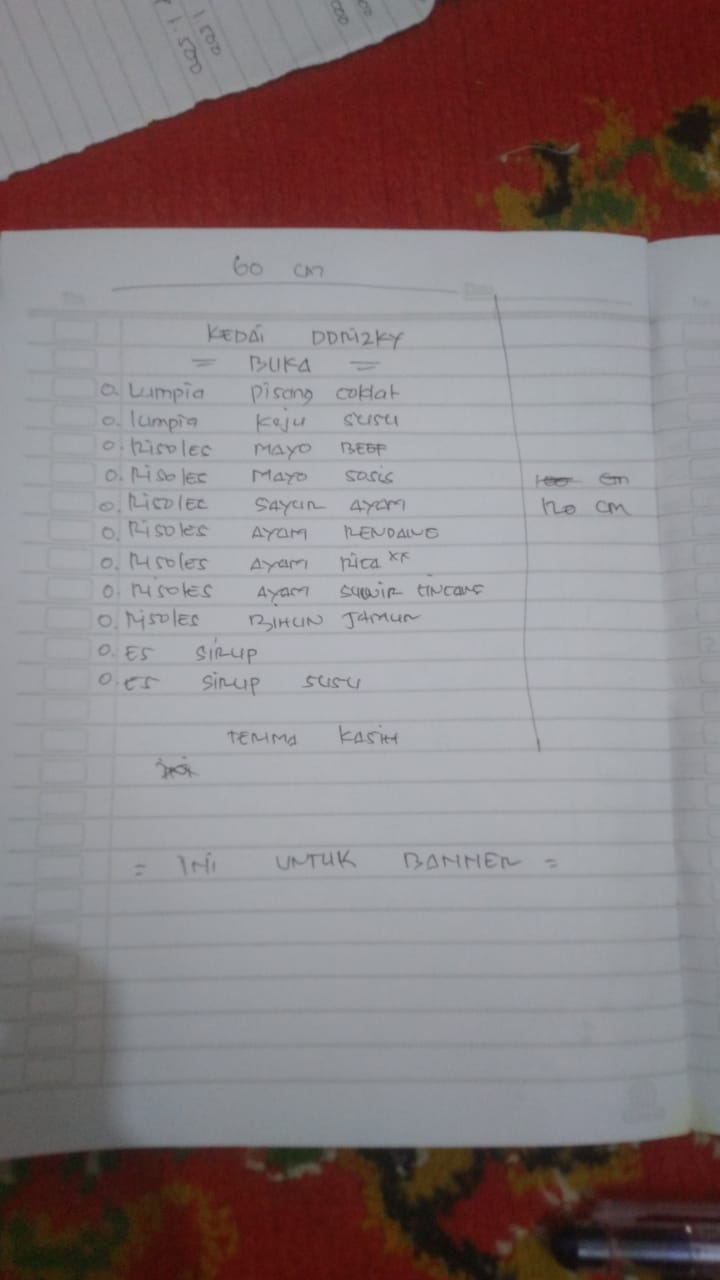 1.500
1.500
60 cm
KEDAi DDRIZKY
= BUKA =
o. Lumpia Pisang coklat
o. lumpia Keju susu
o. Risoles MAYO BEEF
o. Risoles MAYO Sosis
o. RISOLES SAYUR AYAM
o. Risoles AYAM RENDANG
o. Risoles AYAM Rica xx
o. RisolES AYAM SUWIR KINCANG
o. RisolES BIHUN JAMUR
o. ES SIRUP
o. ES SIRUP SUSU
120 cm
TERIMA KASIH
= INI UNTUK BANNER =